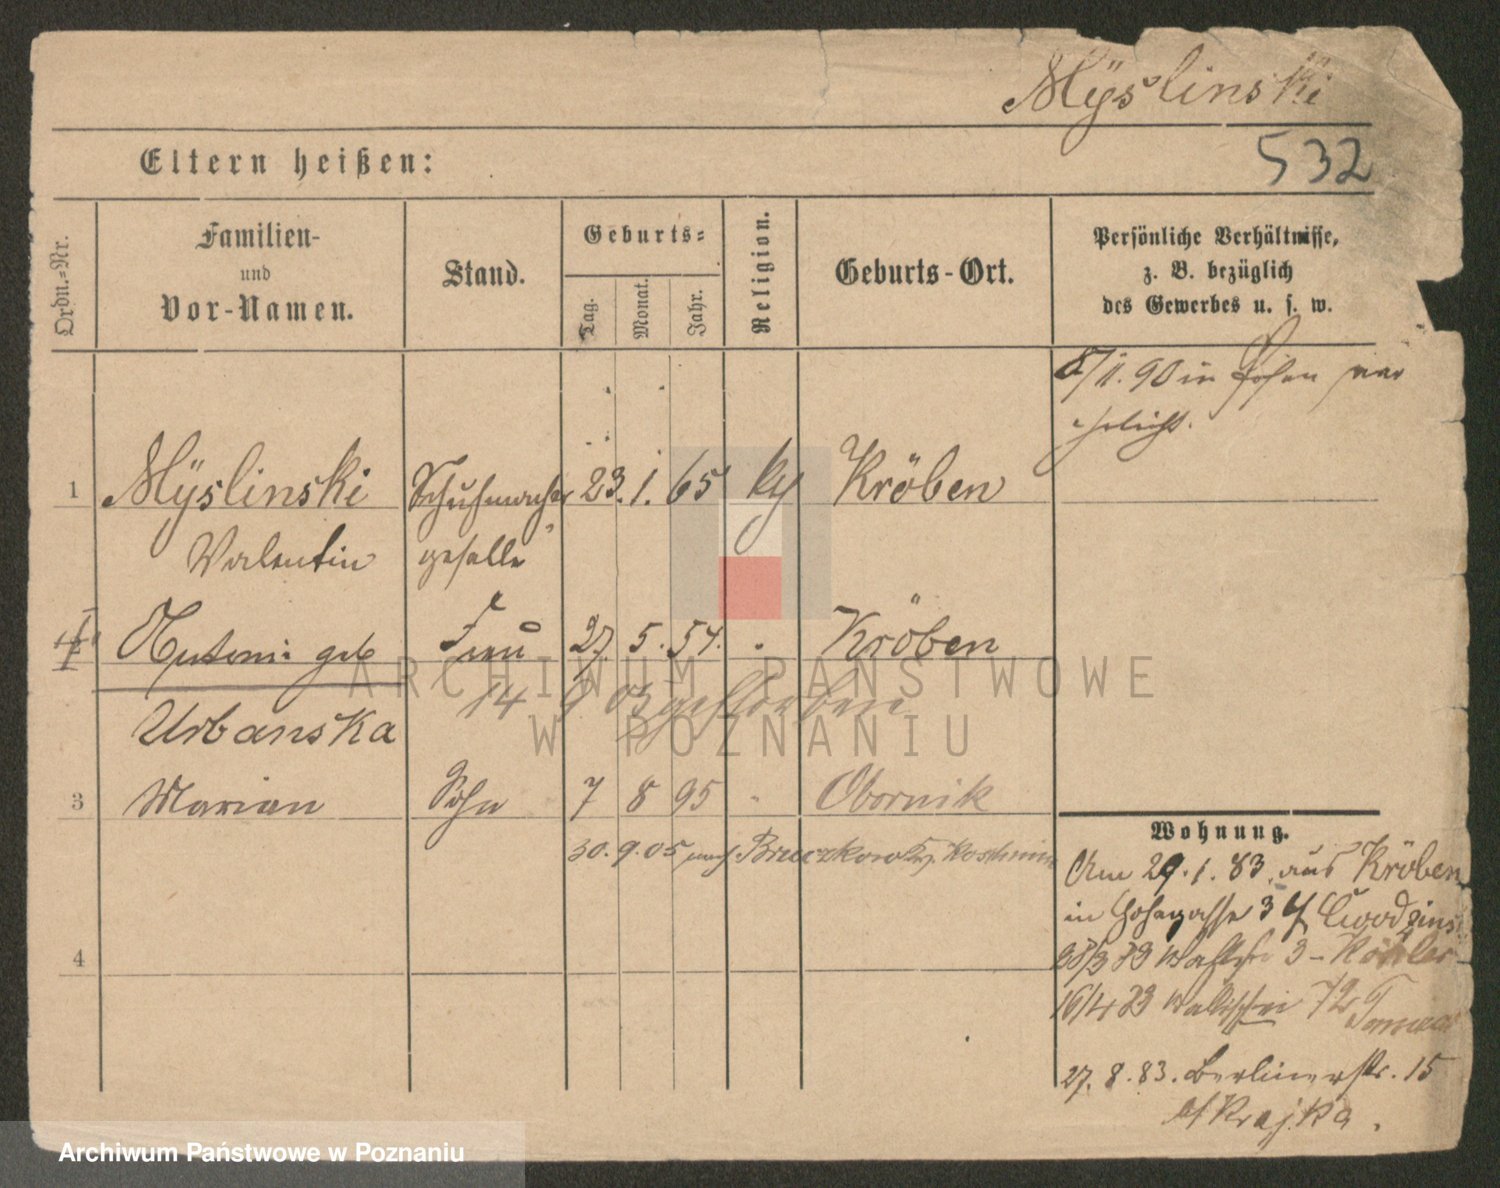 Mÿslinski
532
Eltern heißen:
Ordn.-Nr.
Familien-
und
Vor-Namen.
Stand.
Geburts-
Tag.
Monat.
Jahr.
Religion.
Geburts-Ort.
Persönliche Verhältnisse,
z. B. bezüglich
des Gewerbes u. s. w.
8/11.90 in Posen ver
ehelicht.
1 Mÿslinski Schuhmacher 23. 1. 65 kg Kröben
Valentin geselle
Antonie geb Frau 27. 5. 57. " Kröben
Urbanska 14 9 03 gestorben
3 Marian Sohn 7 8 95 " Obornik
30. 9. 05 nach Koschmin
4
Wohnung.
Am 29. 1. 83 aus Kröben
in 34
3 - Köhler
16/4 83 Wallischei 72
27. 8. 83. Berlinerstr. 15
bf Krajka.
ARCHIWUM PAŃSTWOWE
W POZNANIU
Archiwum Państwowe w Poznaniu